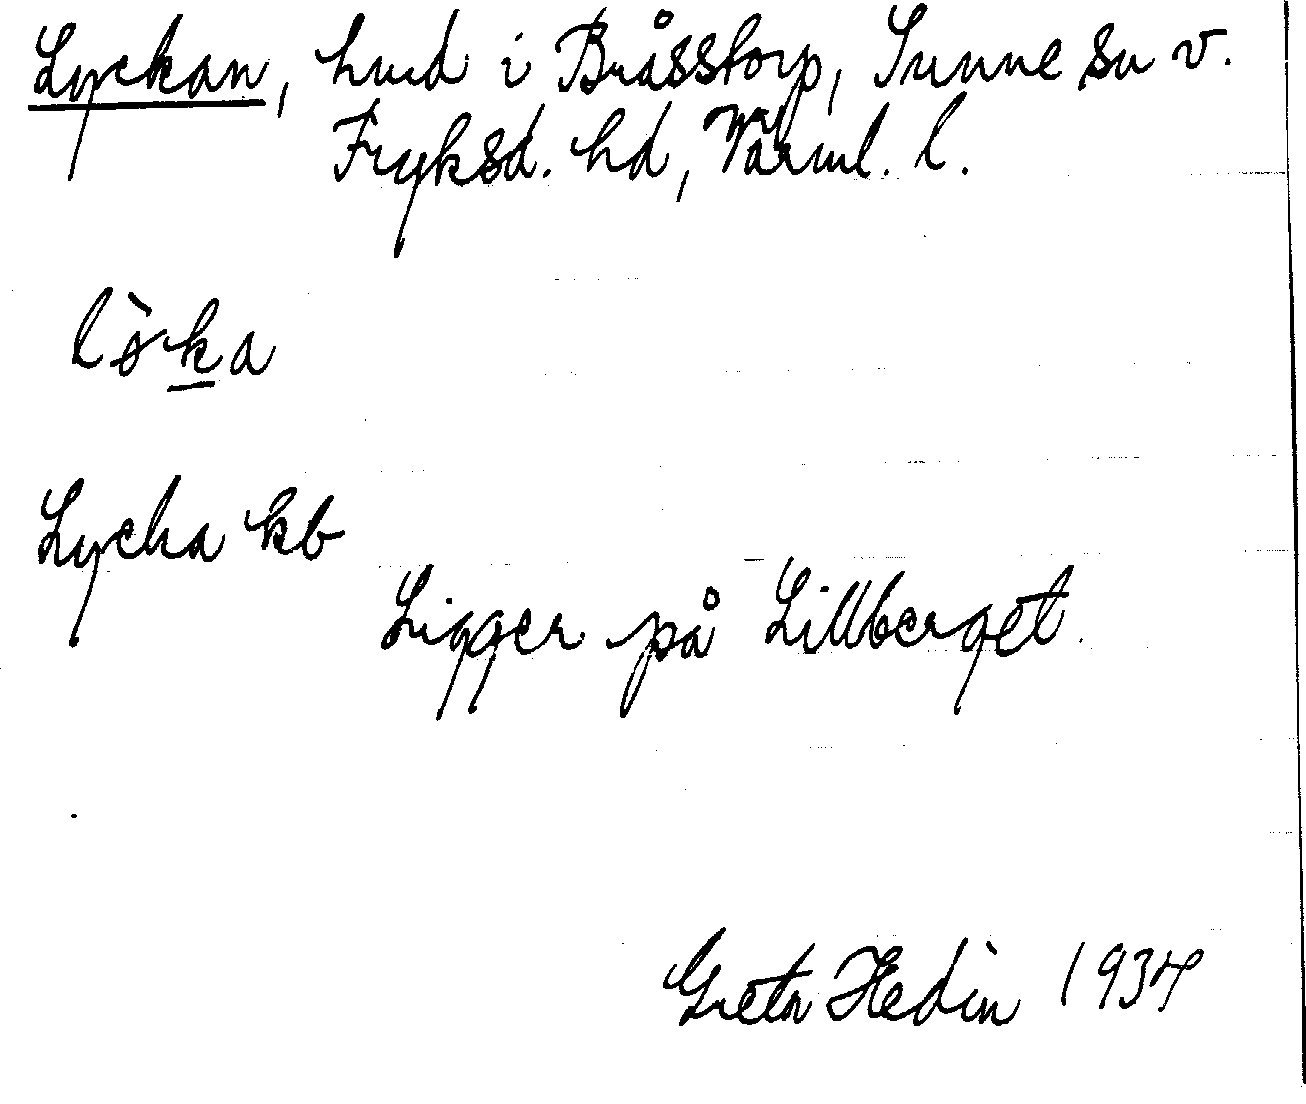 Lyckan, hmd i Bråsstorp, Sunne sn v.
Fryksd. hd, Värml. l.
lø̀ka
Lycka kb
Ligger på Lillberget.
Greta Hedin 1934